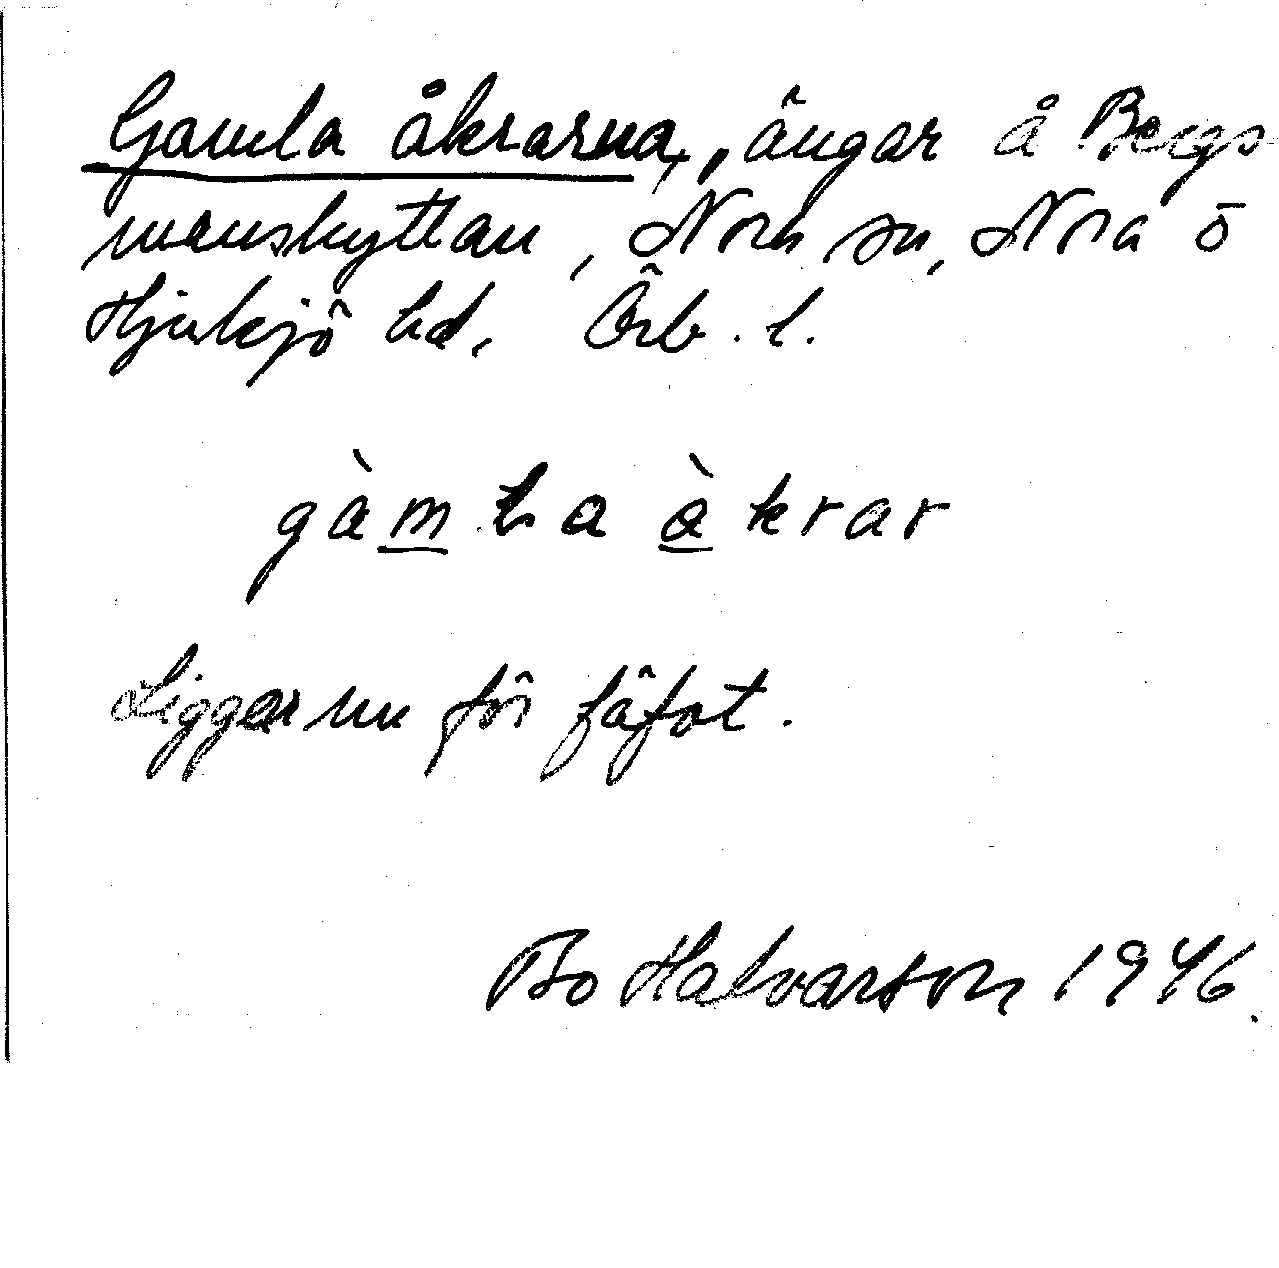 Gamla åkrarna, ängar å Bergs
manshyttan, Nora sn, Nora o
Hjulsjö hd. Örb. l.
gàmla àkrar
Ligger nu för fäfot.
Bo Halvarson 1946.